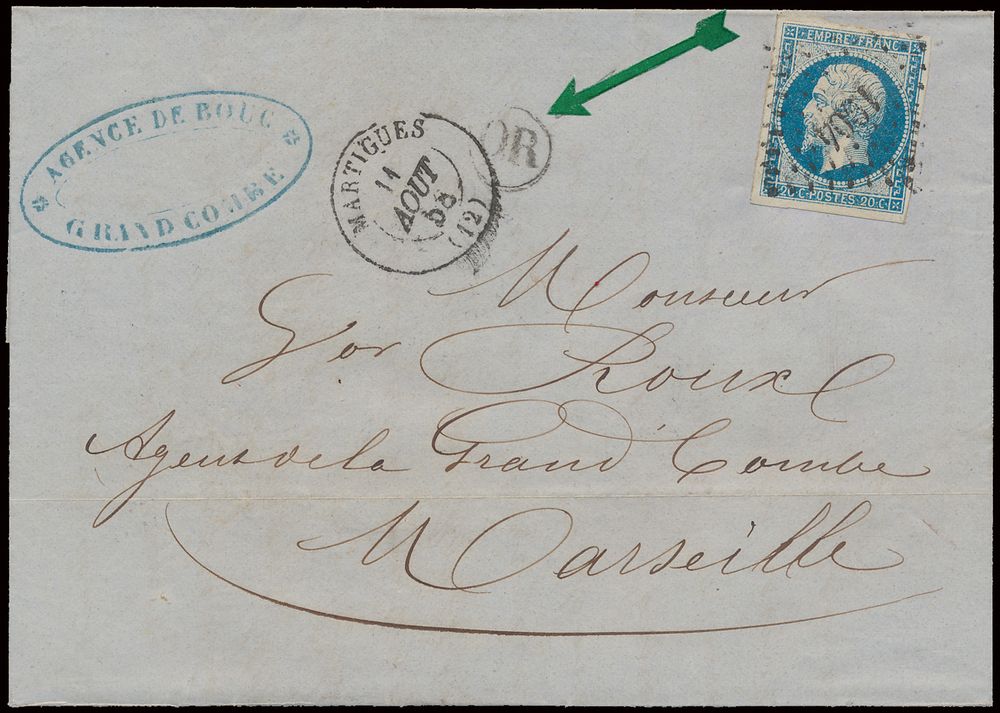 AGENCE DE BOUC
GRAND COMBE
MARTIGUES
11
AOUT
58
(12)
OR
EMPIRE FRANC
20·C·POSTES 20·C·
Monsieur
Roux
Agent de la Grand Combe
Marseille